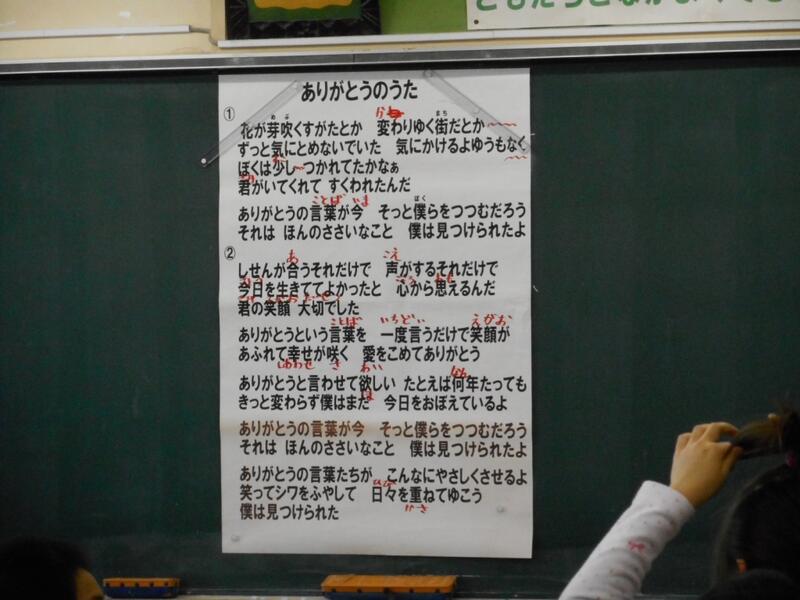 ありがとうのうた
①
花が芽吹くすがたとか　変わりゆく街だとか
ずっと気にとめないでいた　気にかけるよゆうもなく
ぼくは少し〜つかれてたかなぁ
君がいてくれて すくわれたんだ
ありがとうの言葉が今　そっと僕らをつつむだろう
それは ほんのささいなこと　僕は見つけられたよ
②
しせんが合うそれだけで　声がするそれだけで
今日を生きててよかったと　心から思えるんだ
君の笑顔 大切でした
ありがとうという言葉を　一度言うだけで笑顔が
あふれて幸せが咲く　愛をこめてありがとう
ありがとうと言わせて欲しい たとえば何年たっても
きっと変わらず僕はまだ　今日をおぼえているよ
ありがとうの言葉が今　そっと僕らをつつむだろう
それは ほんのささいなこと　僕は見つけられたよ
ありがとうの言葉たちが　こんなにやさしくさせるよ
笑ってシワをふやして　日々を重ねてゆこう
僕は見つけられた